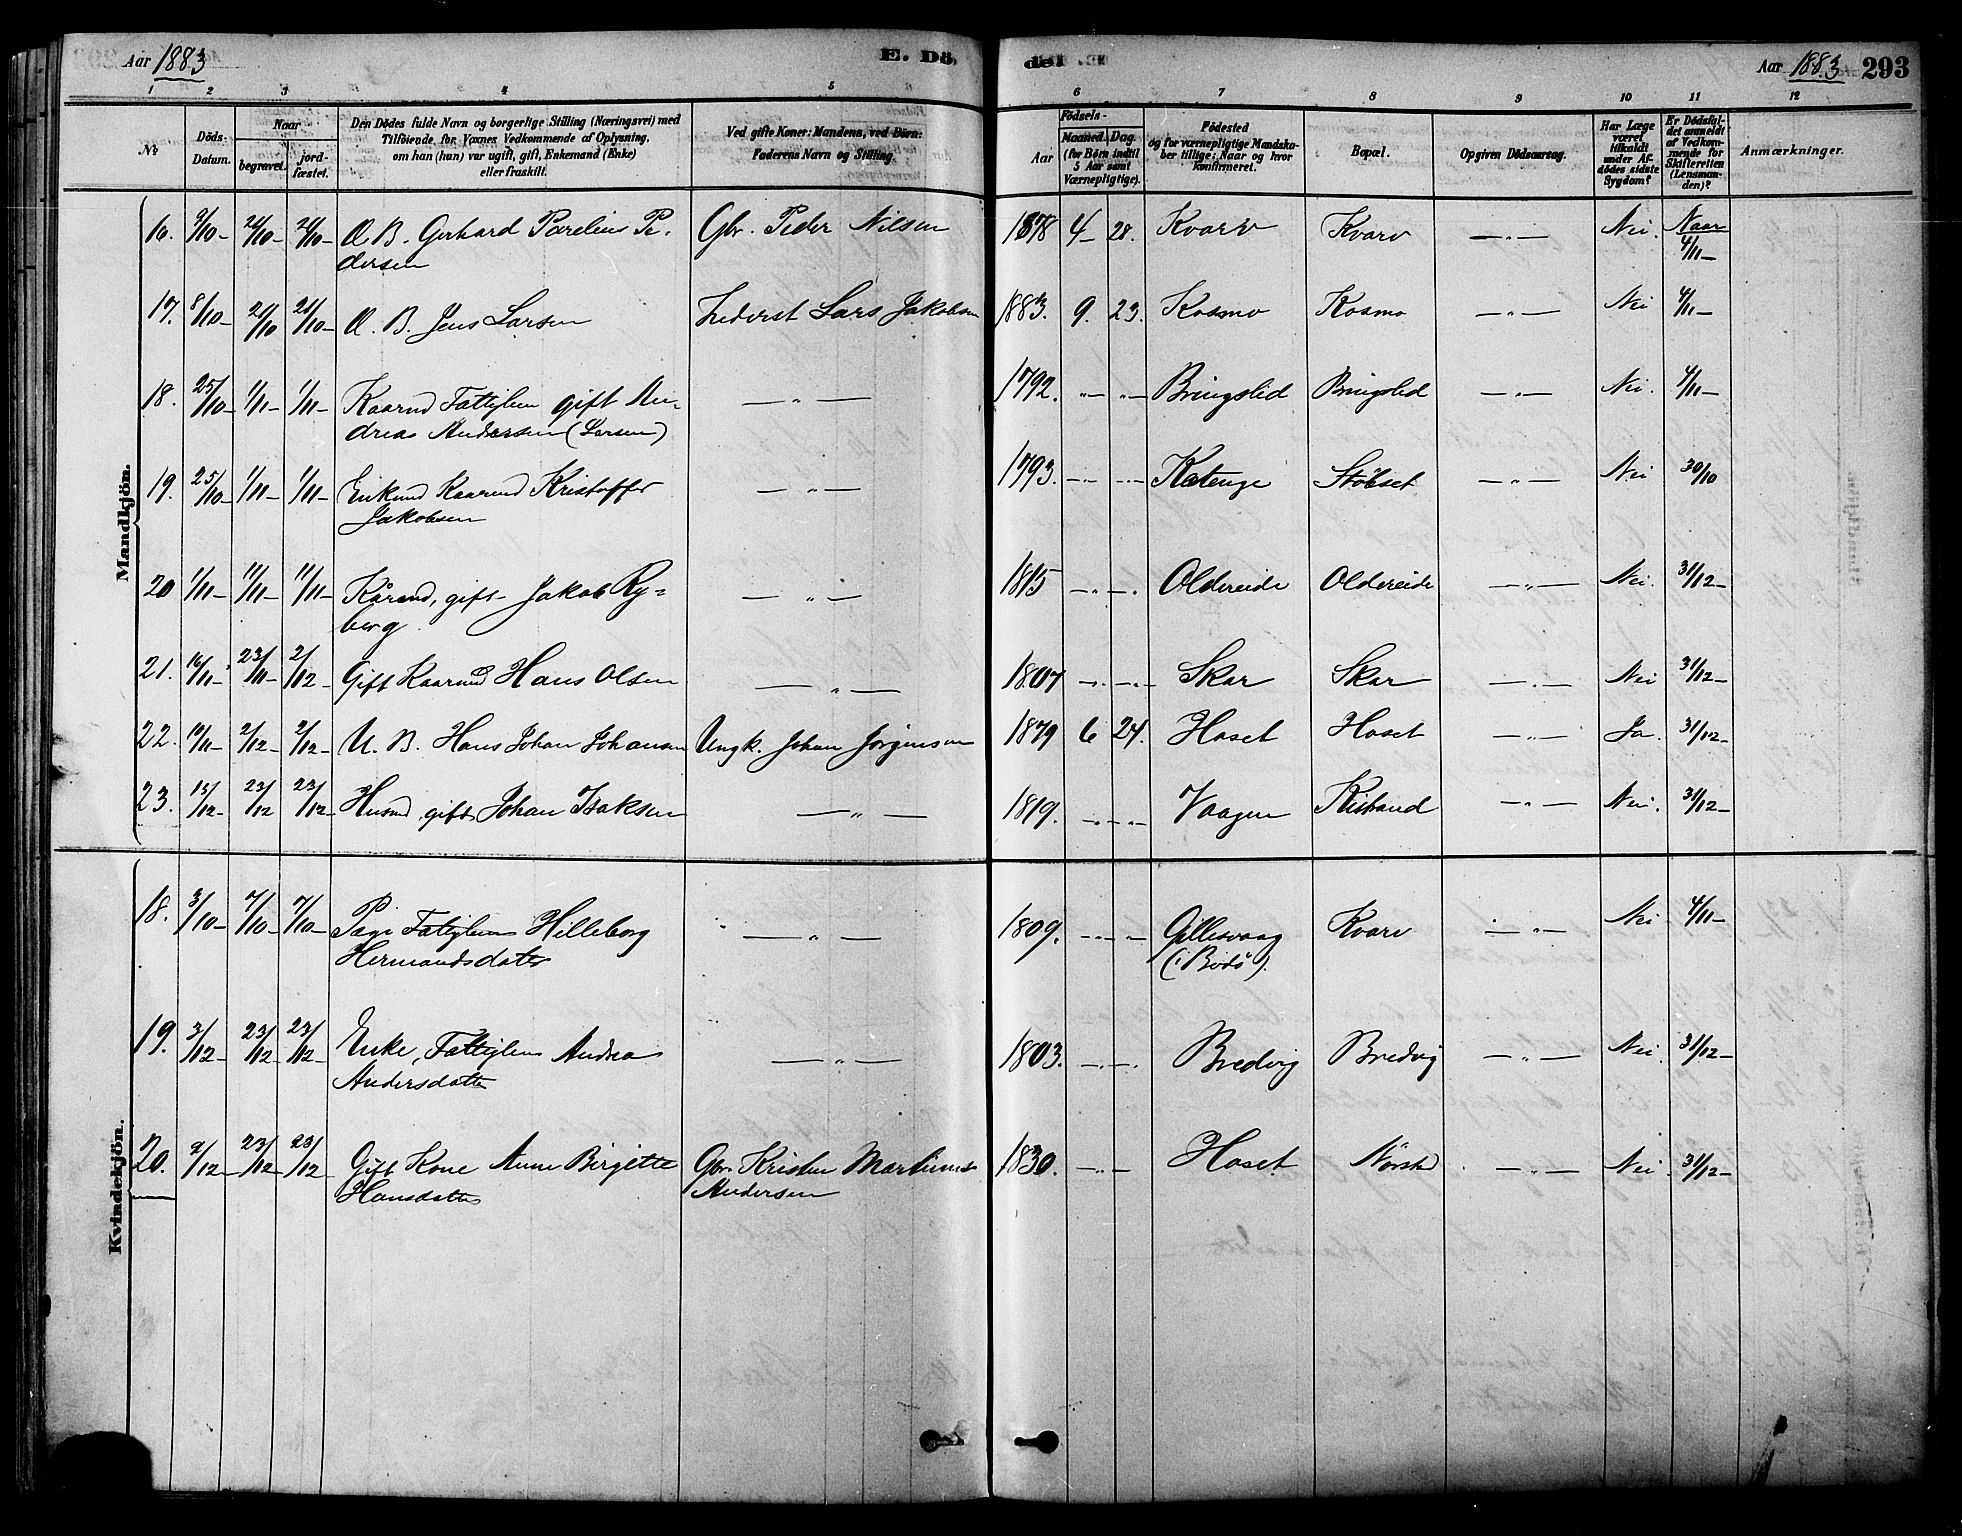 Aar 1883
E. Dö-
del
Aar 1883
293
1 2 3 4 5 6 7 8 9 10 11 12
No
Döds-
Datum.
Naar
begravet.
jord-
fæstet.
Den Dödes fulde Navn og borgerlige Stilling (Næringsvei) med
Tilföiende, for Voxnes Vedkommende af Oplysning,
om han (hun) var ugift, gift, Enkemand (Enke)
eller fraskilt.
Ved gifte Koner: Mandens, ved Börn:
Faderens Navn og Stilling.
Födsels-
Aar
Maaned. Dag.
(for Börn indtil
5 Aar samt
Værnepligtige).
Födested
og for værnepligtige Mandska-
ber tillige: Naar og hvor
konfirmeret.
Bopæl.
Opgiven Dödsaarsag.
Har Læge
været
tilkaldt
under Af-
dödes sidste
Sygdom?
Er Dödsfal-
det anmeldt
af Vedkom-
mende for
Skifteretten
(Lensman-
den)?
Anmærkninger.
Mandkjön.
16. 9/10- 21/10- 21/10- Æ. B. Gerhard Parelius Pe- Gbr. Peder Nilsen 1878 4- 28. Kvarv Kvarv -"- Nei. Naar
dersen 4/11-
17. 8/10- 21/10 21/10- Æ. B. Jens Larsen Lars Jakobsen 1883. 9. 23. Kosmo Kosmo -"- Nei 4/11-
18. 25/10- 1/11- 1/11- Kaarmd Fattiglem gift An- -"- 1792. -"- -"- Bringslid Bringslid -"- Nei. 4/11-
dreas Andersen (Larsen)
19. 25/10- 1/11- 1/11- Enkemd Kaarmd Kristoffer -"- 1793. -"- -"- Støbset -"- Nei 30/10
Jakobsen
20 1/11- 11/11- 11/11- Kårmd, gift Jakob Ry- -"- 1815 -"- -"- Oldereide Oldereide -"- Nei. 31/12-
berg.
21. 16/11- 23/11- 2/12- Gift Kaarmd Hans Olsen -"- 1807 -"- -"- Skar Skar -"- Nei 31/12-
22. 19/11- 2/12- 2/12- U. B. Hans Johan Johansen Ungk. Johan Jörgensen 1879 6 24. Hoset Hoset -"- Ja. 31/12-
23. 15/12- 23/12 23/12- Husmd gift Johan Isaksen -"- 1819. -"- -"- Vaagen -"- Nei. 31/12-
Kvindekjön.
18. 3/10- 7/10- 7/10- Pige Fattiglem Hilleborg -"- 1809. -"- -"- Gillesvaag Kvarv -"- Nei 4/11-
Hermandsdatter (i Bodö).
19. 3/12- 23/12- 23/12- Enke, Fattiglem Andrea -"- 1803. -"- -"- Bredvig Bredvig -"- Nei. 31/12-
Andersdatter
20. 9/12- 23/12- 23/12 Gift Kone Anne Birgitte Gbr. Kristen Martinus 1830. -"- Hoset -"- Nei 31/12-
Hansdatter Andersen